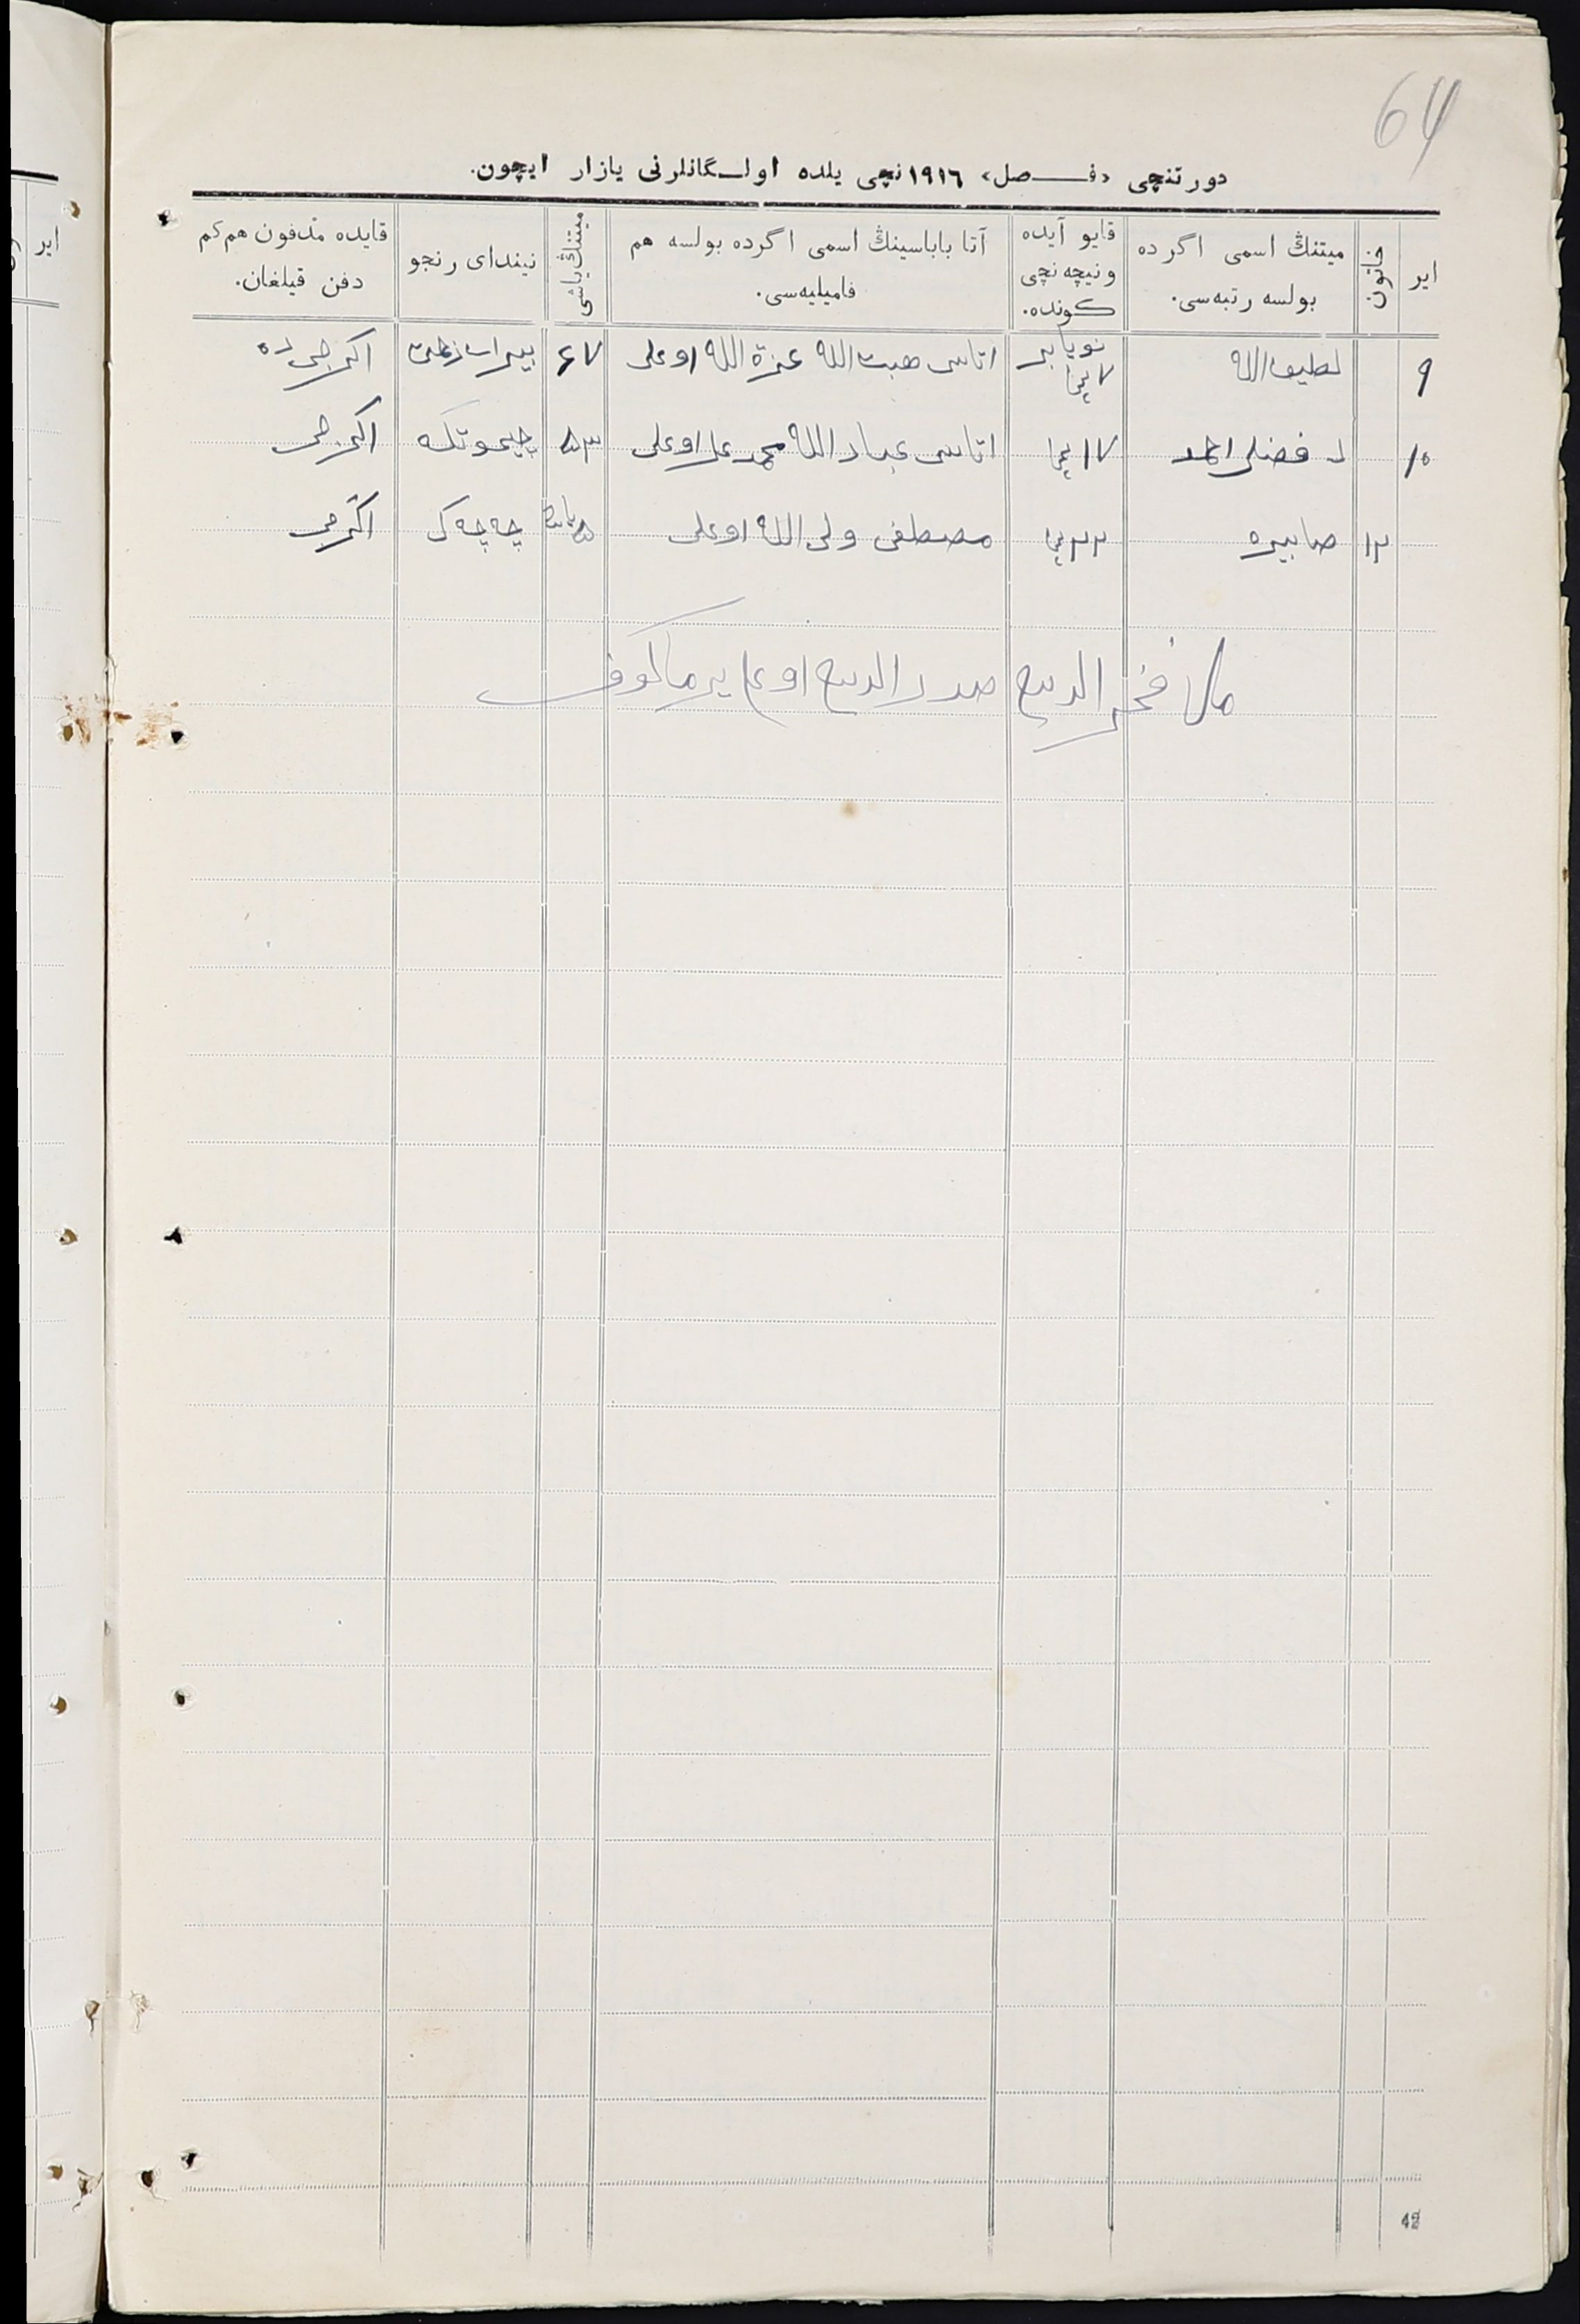 64
دورتنچی «فـــصل» ١٩١٦نچی یلده اولـگانلرنی یازار ایچون.
ایر
خاتون
میتنڭ اسمی اگرده
بولسه رتبه‌سی.
قایو آیده
ونیچه نچی
کونده.
آتا باباسینڭ اسمی اگرده بولسه هم
فامیلیه‌سی.
میتنڭ یاشی
نیندای رنجو
قایده مدفون هم کم
دفن قیلغان.
٩ لطیف الله نویابر ٧ نچی اتاسی هبت الله عزة الله اوغلی ٤٧
١٠ فضل احمد ١٧ نچی اتاسی عباد الله محمد علی اوغلی ٥٣ چیموتکه
١٢ صابیره ٢٢ نچی مصطفی ولی الله اوغلی ٥ یاش چه‌چه‌ک
ملا فخر الدین صدر الدین اوغلی
ایر
42